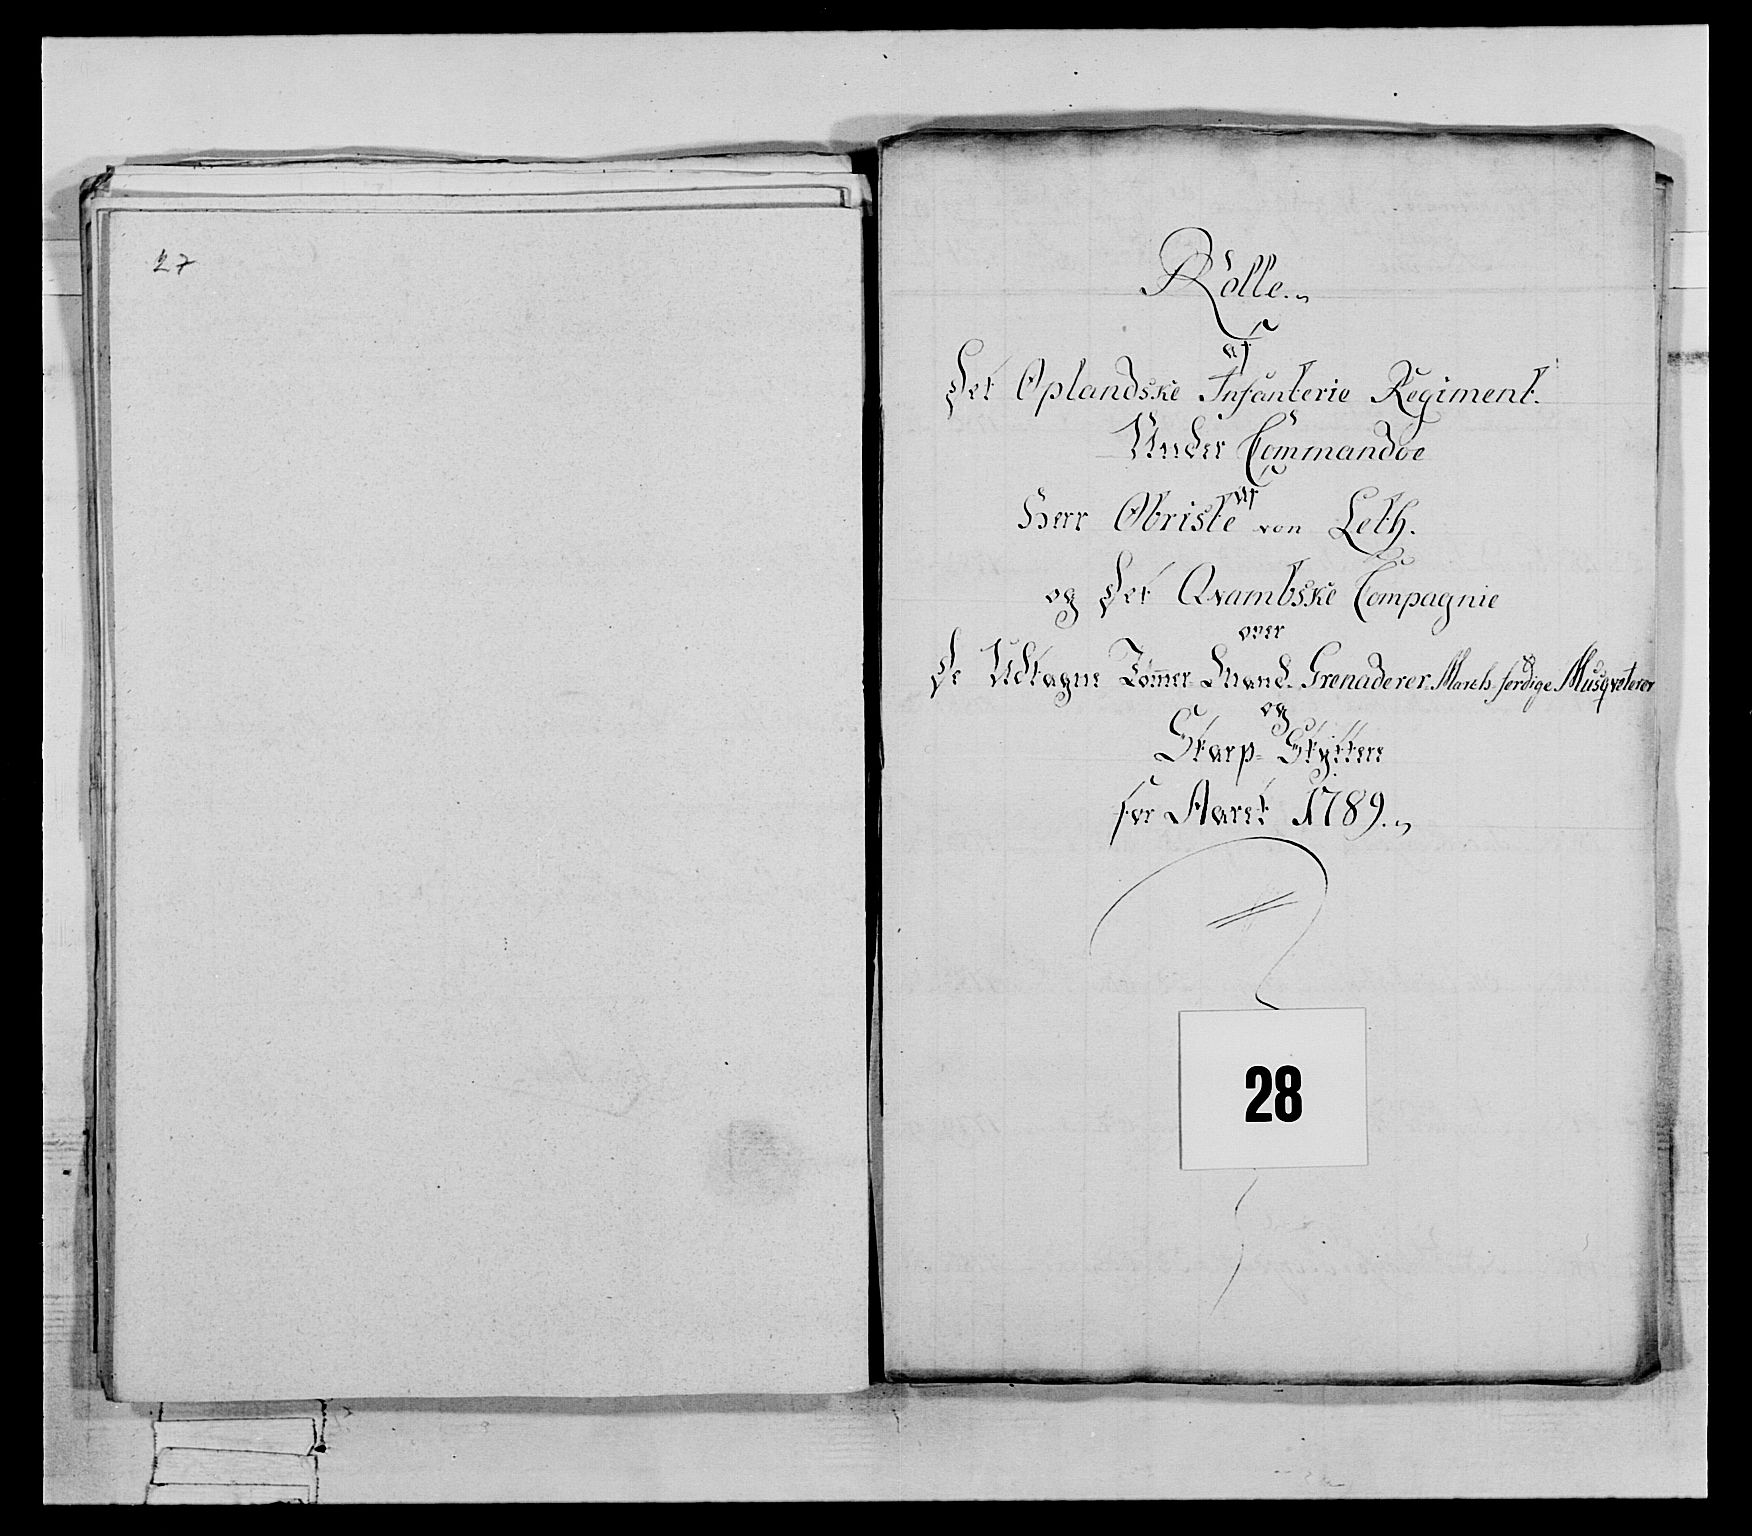 27
Rolle.
af
Det Oplandske Infanterie Regiment.
Under Commandoe
af
Herr Obriste von Leth.
og Det Qvambske Compagnie
over
De Udtagne Tømmer Mænd Grenaderer March færdige Musqveterer
og
Skarp- Skyttere
for Aaret 1789.
28